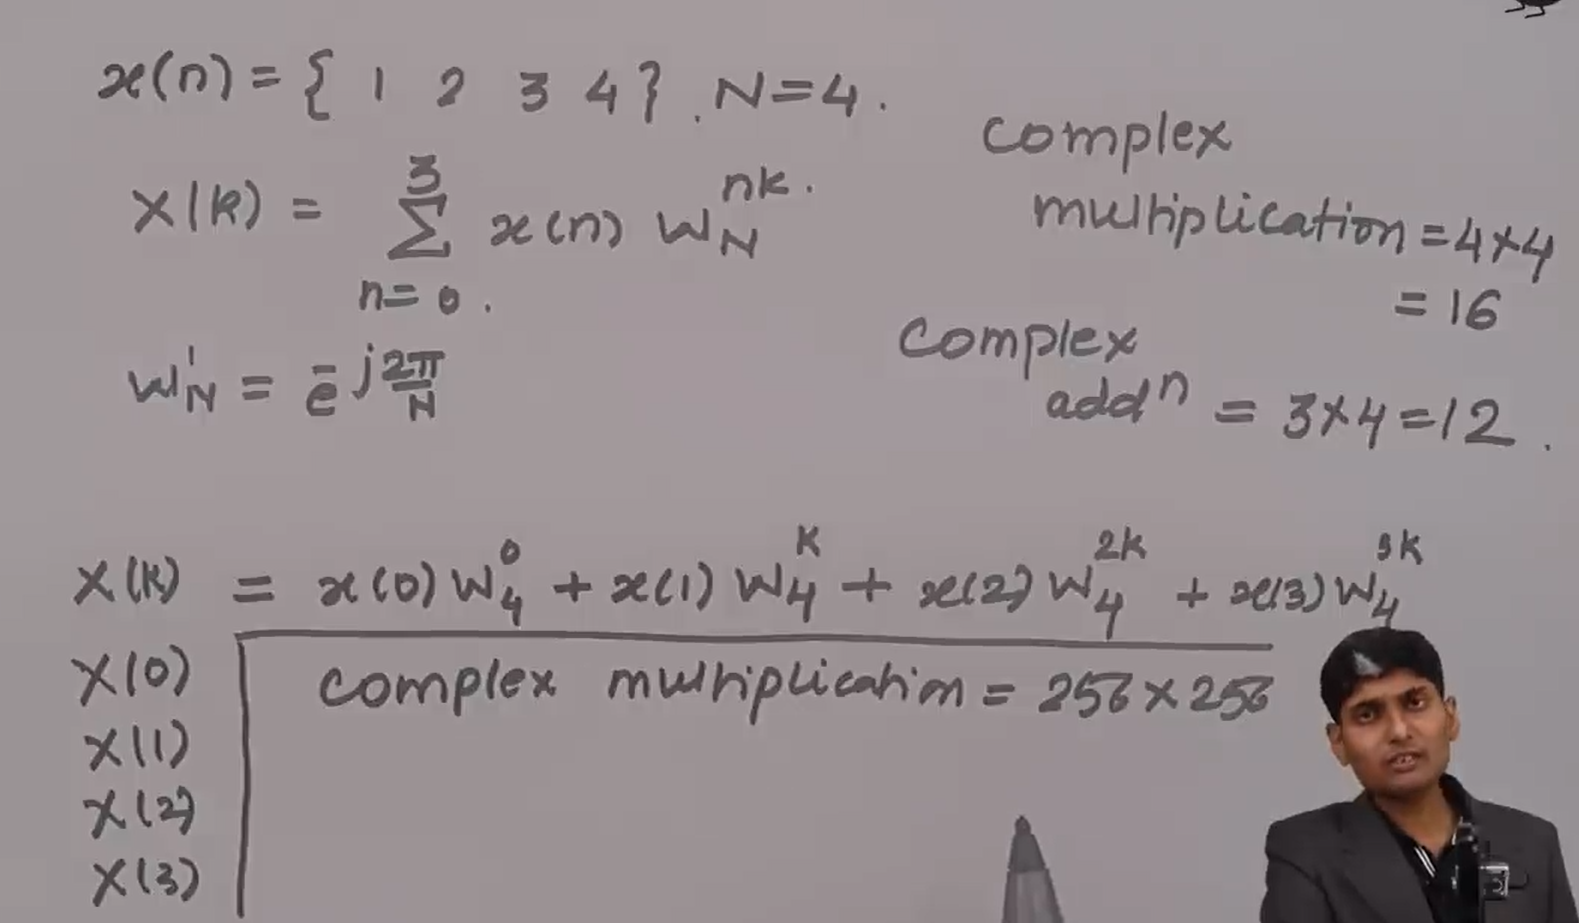 x(n) = { 1 2 3 4 } . N = 4 .
X(k) = 3 Σ n = 0 . x(n) W_N^nk .
W_N^1 = e^-j2π/N
complex
multiplication = 4×4
= 16
complex
add^n = 3×4 = 12 .
X(k) = x(0) W_4^0 + x(1) W_4^k + x(2) W_4^2k + x(3) W_4^3k
X(0) complex multiplication = 256 × 256
X(1)
X(2)
X(3)